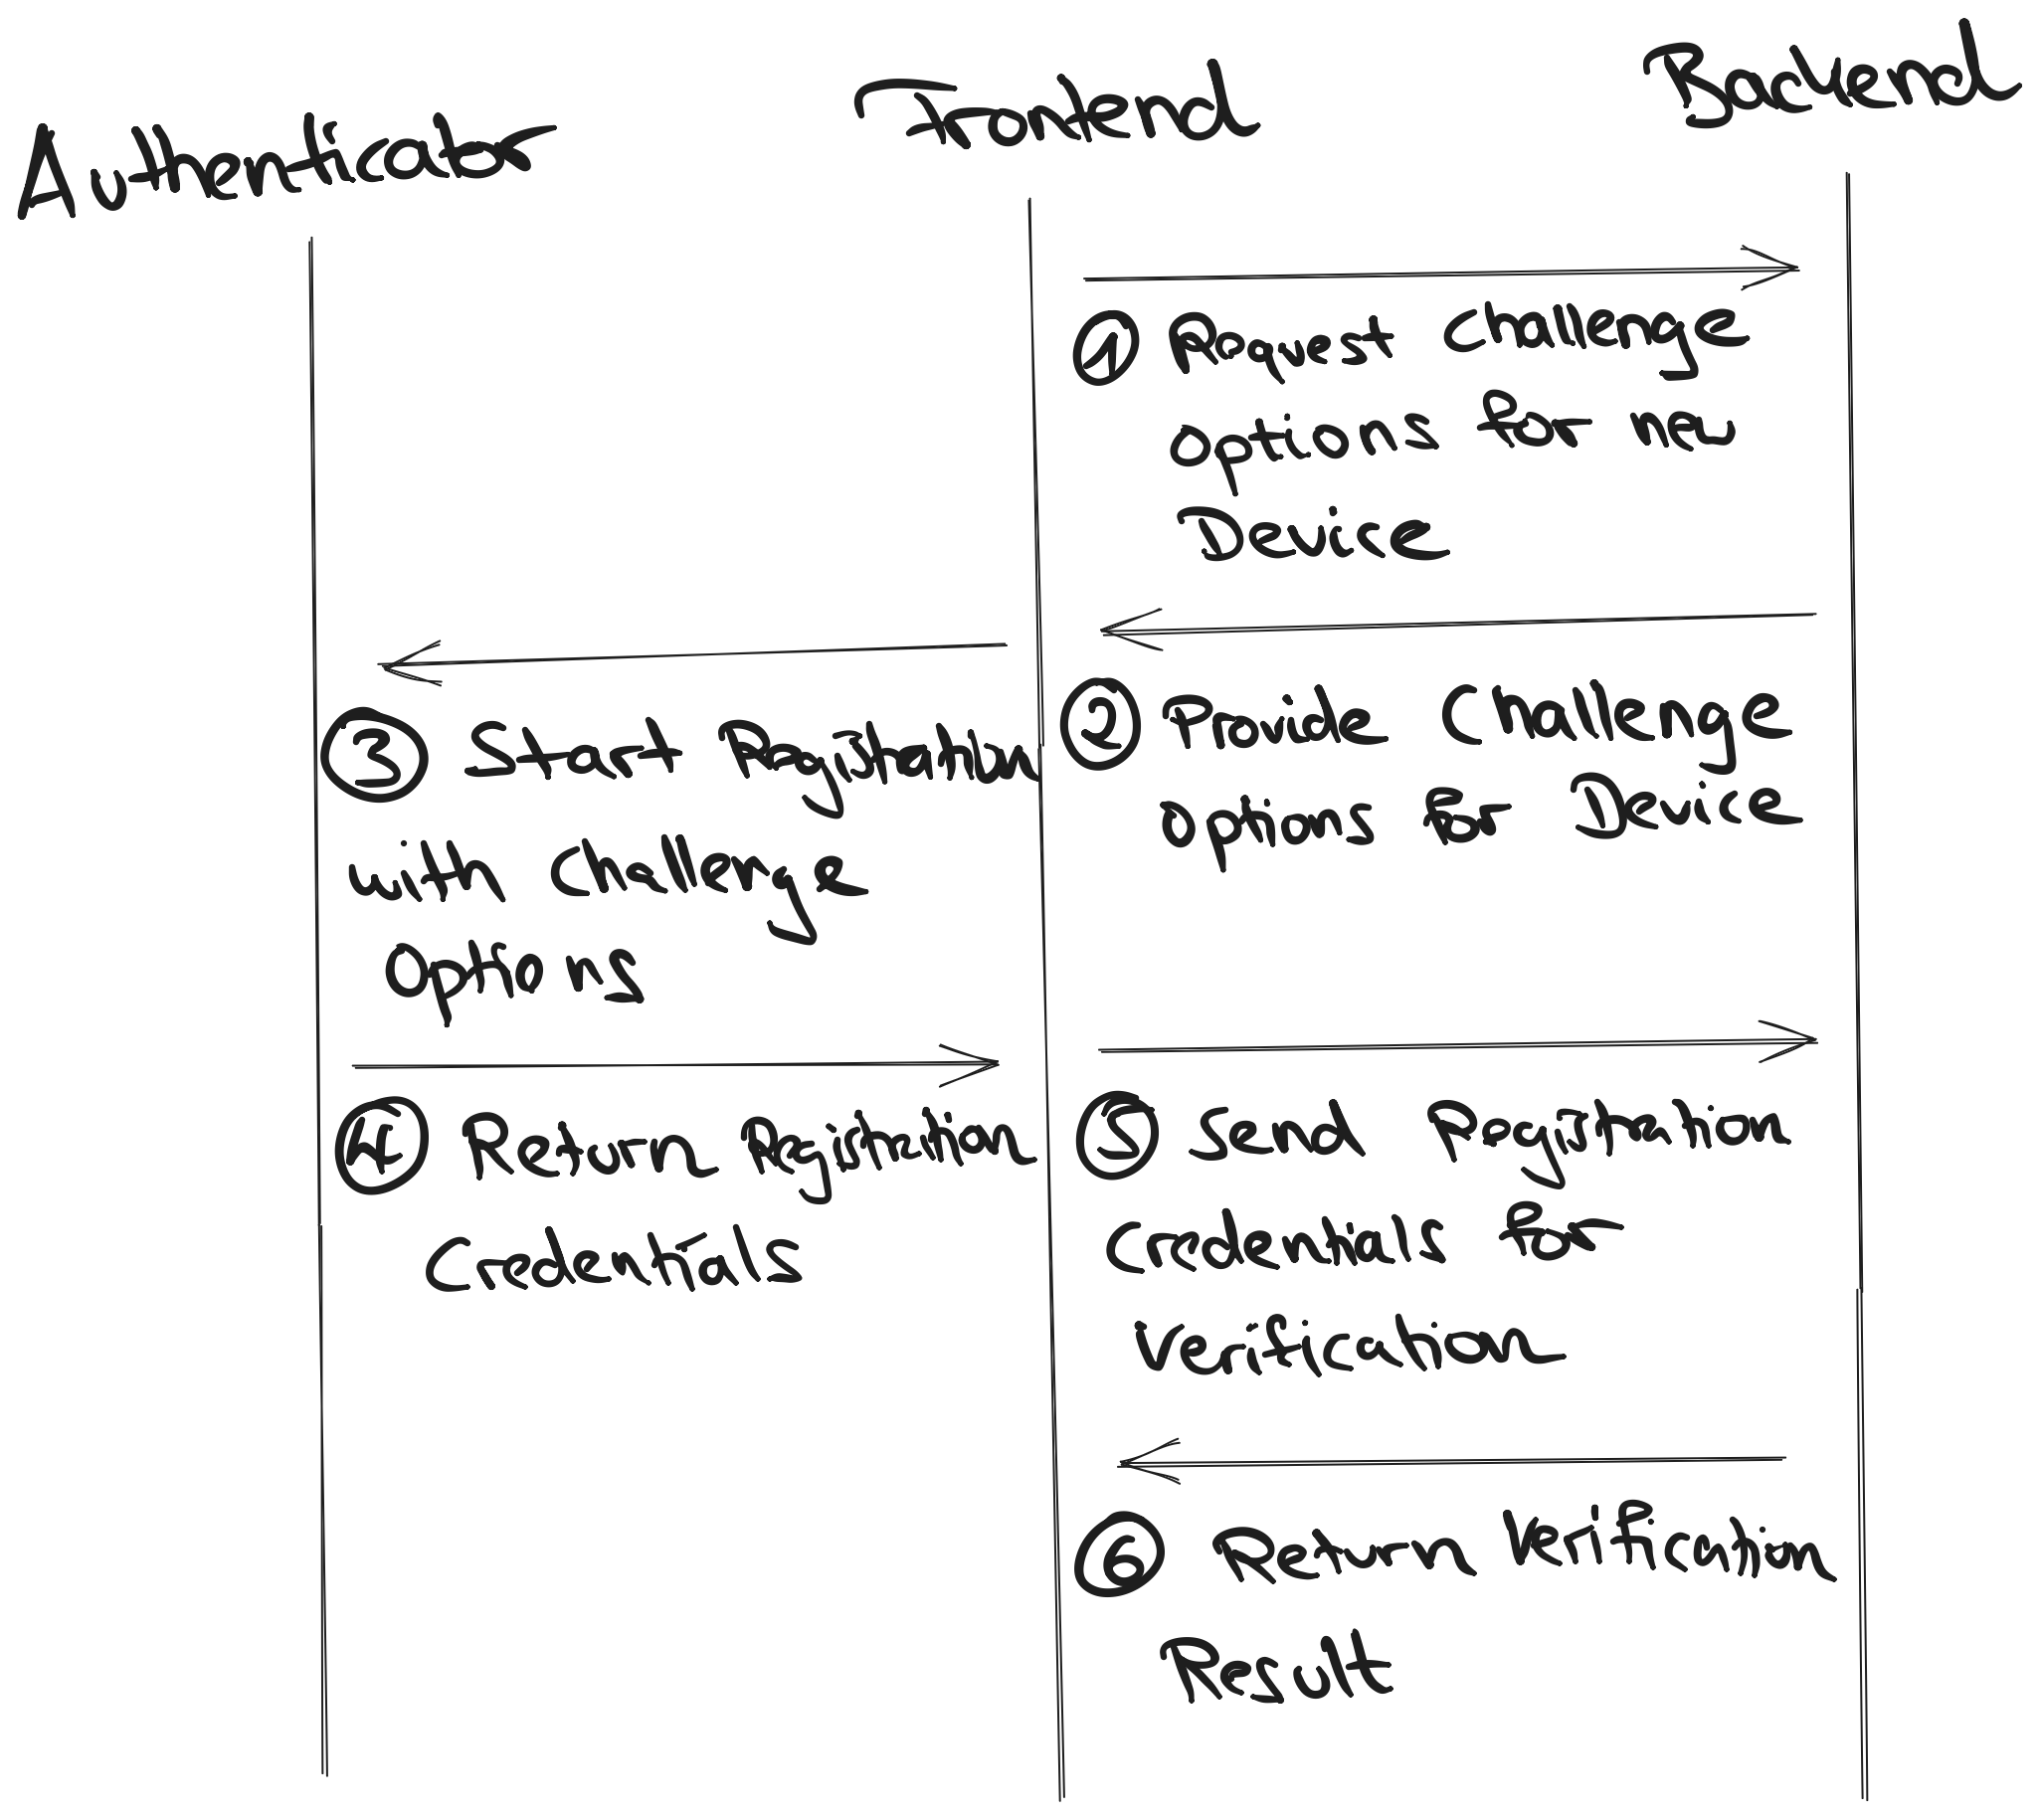 Authenticator
Frontend
Backend
1 Request Challenge
options for new
Device
2 Provide Challenge
options for Device
3 Start Registration
with Challenge
options
4 Return Registration
Credentials
5 Send Registration
Credentials for
Verification
6 Return Verification
Result